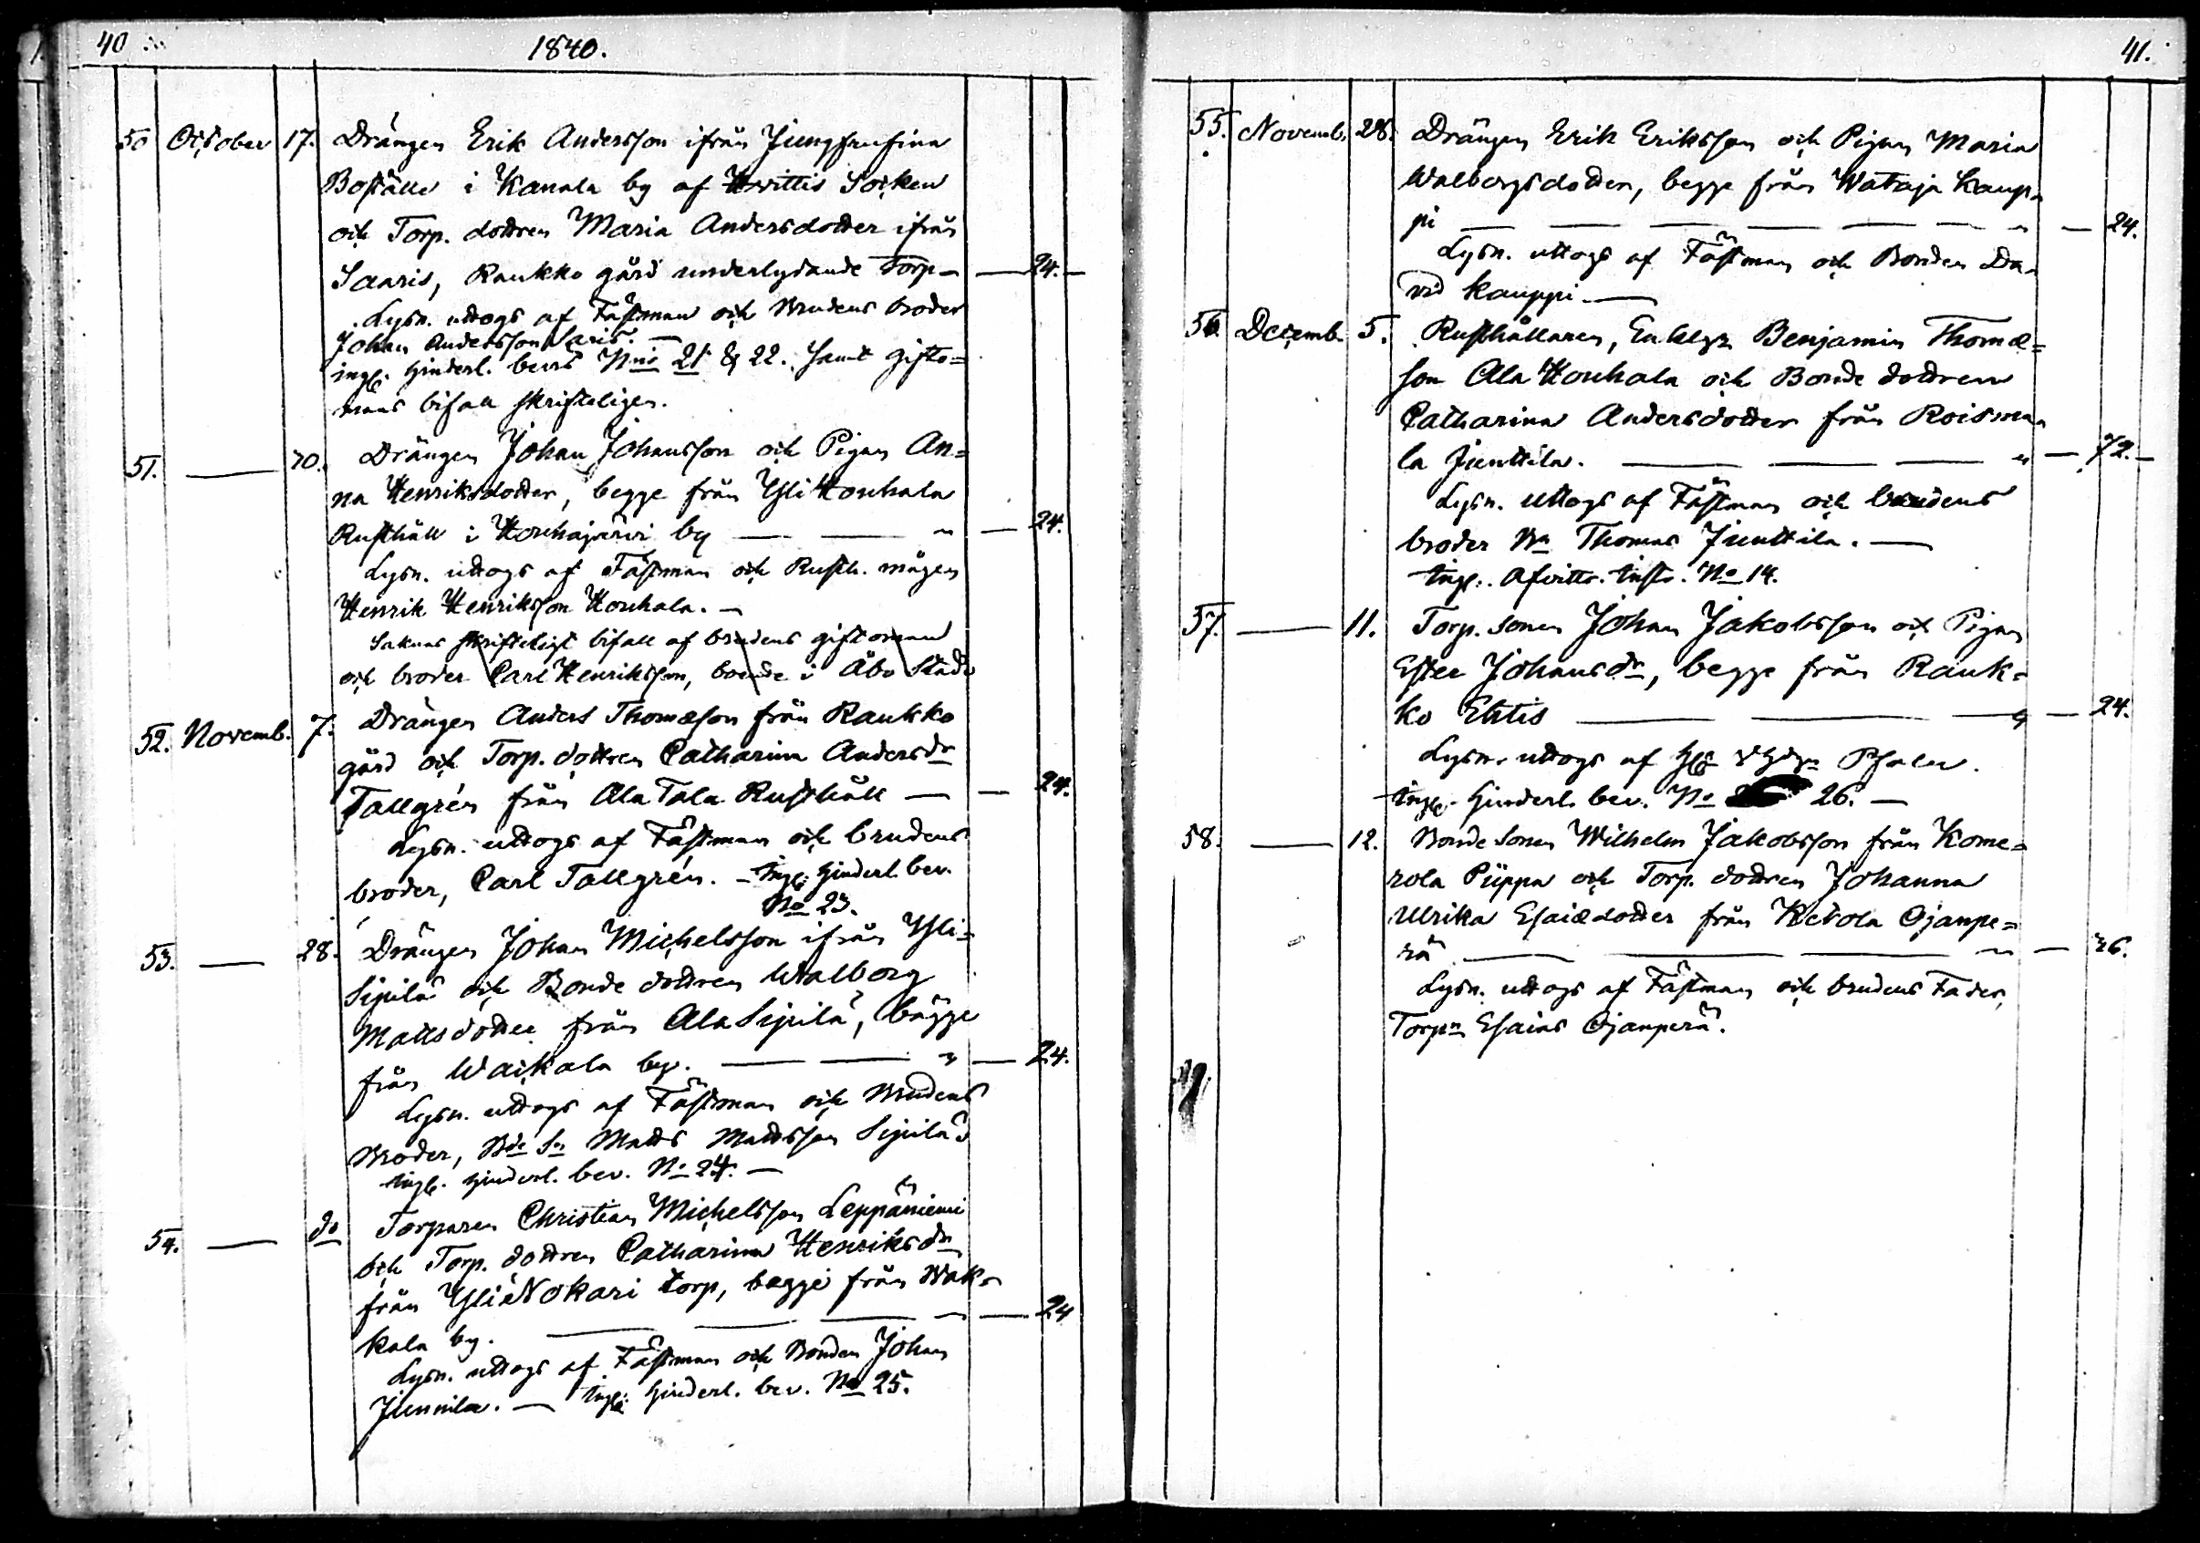 40
1840.
50 October 17. Drängen Erik Andersson ifrån Jungfrufinn
Boställe i Kanala by af Hvittis Socken
och Torp. dottren Maria Andersdotter ifrån
Saaris, Raukko gård underlydande Torp — 24. —
Lysn. uttogs af Fästman och Brudens Broder
Johan Andersson Saris. —
ingf. Hinderl. bevis Nris 21 & 22. Samt gifto=
mans bifall skrifteligen.
51. — 20. Drängen Johan Johansson och Pigan An=
na Henriksdotter, begge från Yli Houhala
Rusthåll i Houhajärvi by — — " — 24.
Lysn. uttogs af Fästman och Rusth. mågen
Henrik Henriksson Houhala. —
Saknas skrifteligt bifall af brudens giftoman
och broder Carl Henriksson, boende i Åbo Stad
52. Novemb. 7. Drängen Anders Thomæson från Raukko
gård och Torp. dottren Catharina Andersdr
Tallgrén från Ala Tala Rusthåll — — 24.
Lysn. uttogs af Fästman och brudens
broder, Carl Tallgrén. — Ingf. Hinderl. bev.
No 23.
53. — 28. Drängen Johan Michelsson ifrån Yli=
Sipilä och Bonde dottren Walborg
Mattsdotter från Ala Sipilä, bägge
från Waikala by. — — " — 24.
Lysn. uttogs af Fästman och Brudens
Broder, Bde Sn Matts Mattsson Sipilä
Ingf. Hinderl. bev. No 24. —
54. — do Torparen Christian Michelsson Leppäniemi
och Torp. dottren Catharina Henriksdr
från Yli Nokari torp, begge från Wak=
kala by. — — — " — 24
Lysn. uttogs af Fästman och Bonden Johan
Junnila. — Ingf. Hinderl. bev. No 25.
41.
55. Novemb. 28. Drängen Erik Eriksson och Pigan Maria
Walborgsdotter, begge från Wataja Kaup=
pi — — — — " — 24.
Lysn. uttogs af Fästman och Bonden Da=
vid Kauppi. —
56 Decemb. 5. Rusthållaren, Enklgn Benjamin Thomæ=
son Ala Houhala och Bonde dottren
Catharina Andersdotter från Roisma=
la Junttila. — — — " — 72. —
Lysn. uttogs af Fästman och brudens
broder Bn Thomas Junttila. —
Ingf. Afvittr. Instr. No 14.
57. — 11. Torp. sonen Johan Jakobsson och Pigan
Ester Johansdr, begge från Rauk=
ko Ehtis — — " — 24.
Lysn. uttogs af Pfaler.
Ingf. Hinderl. bev. No 26. —
58. — 12. Bonde sonen Wilhelm Jakobsson från Kome=
rola Piippa och Torp. dottren Johanna
Ulrika Esaiædotter från Ketola Ojanpe=
rä — — — " — 36.
Lysn. uttogs af Fästman och brudens Fader,
Torpn Esaias Ojanperä.